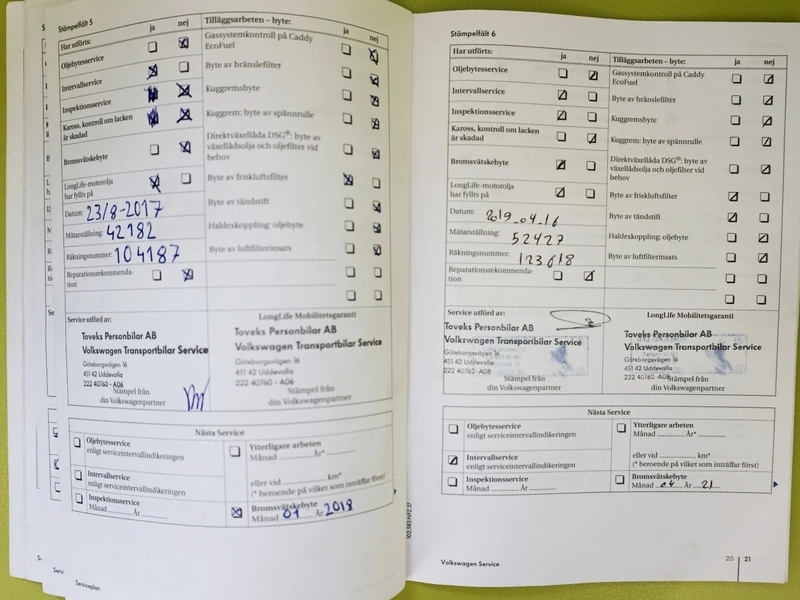 Stämpelfält 5
ja nej
Har utförts:
Oljebytesservice
Intervallservice
Inspektionsservice
Kaross, kontroll om lacken
är skadad
Bromsvätskebyte
LongLife-motorolja
har fyllts på
Datum: 23/8-2017
Mätarställning: 42182
Räkningsnummer: 104187
Reparationsrekommenda-
tion
Tilläggsarbeten – byte:
ja nej
Gassystemkontroll på Caddy
EcoFuel
Byte av bränslefilter
Kuggremsbyte
Kuggrem: byte av spännrulle
Direktväxellåda DSG®: byte av
växellådsolja och oljefilter vid
behov
Byte av friskluftsfilter
Byte av tändstift
Haldexkoppling: oljebyte
Byte av luftfilterinsats
Service utförd av:
Toveks Personbilar AB
Volkswagen Transportbilar Service
Göteborgsvägen 16
451 42 Uddevalla
222 40760 - A06
Stämpel från
din Volkswagenpartner
LongLife Mobilitetsgaranti
Toveks Personbilar AB
Volkswagen Transportbilar Service
Göteborgsvägen 16
451 42 Uddevalla
222 40760 - A06
Stämpel från
din Volkswagenpartner
Nästa Service
Oljebytesservice
enligt serviceintervallindikeringen
Intervallservice
enligt serviceintervallindikeringen
Inspektionsservice
Månad År
Ytterligare arbeten
Månad År*
eller vid km*
(* beroende på vilket som inträffar först)
Bromsvätskebyte
Månad 01 År 2018
Serviceplan
Stämpelfält 6
ja nej
Har utförts:
Oljebytesservice
Intervallservice
Inspektionsservice
Kaross, kontroll om lacken
är skadad
Bromsvätskebyte
LongLife-motorolja
har fyllts på
Datum: 2019-04-16
Mätarställning: 52427
Räkningsnummer: 123618
Reparationsrekommenda-
tion
Tilläggsarbeten – byte:
ja nej
Gassystemkontroll på Caddy
EcoFuel
Byte av bränslefilter
Kuggremsbyte
Kuggrem: byte av spännrulle
Direktväxellåda DSG®: byte av
växellådsolja och oljefilter vid
behov
Byte av friskluftsfilter
Byte av tändstift
Haldexkoppling: oljebyte
Byte av luftfilterinsats
Service utförd av:
Toveks Personbilar AB
Volkswagen Transportbilar Service
Göteborgsvägen 16
451 42 Uddevalla
222 40760 -A08
Stämpel från
din Volkswagenpartner
LongLife Mobilitetsgaranti
Toveks Personbilar AB
Volkswagen Transportbilar Service
Göteborgsvägen 16
451 42 Uddevalla
222 40760 -A08
Stämpel från
din Volkswagenpartner
Nästa Service
Oljebytesservice
enligt serviceintervallindikeringen
Intervallservice
enligt serviceintervallindikeringen
Inspektionsservice
Månad År
Ytterligare arbeten
Månad År*
eller vid km*
(* beroende på vilket som inträffar först)
Bromsvätskebyte
Månad 04 År 21
Volkswagen Service
20 | 21